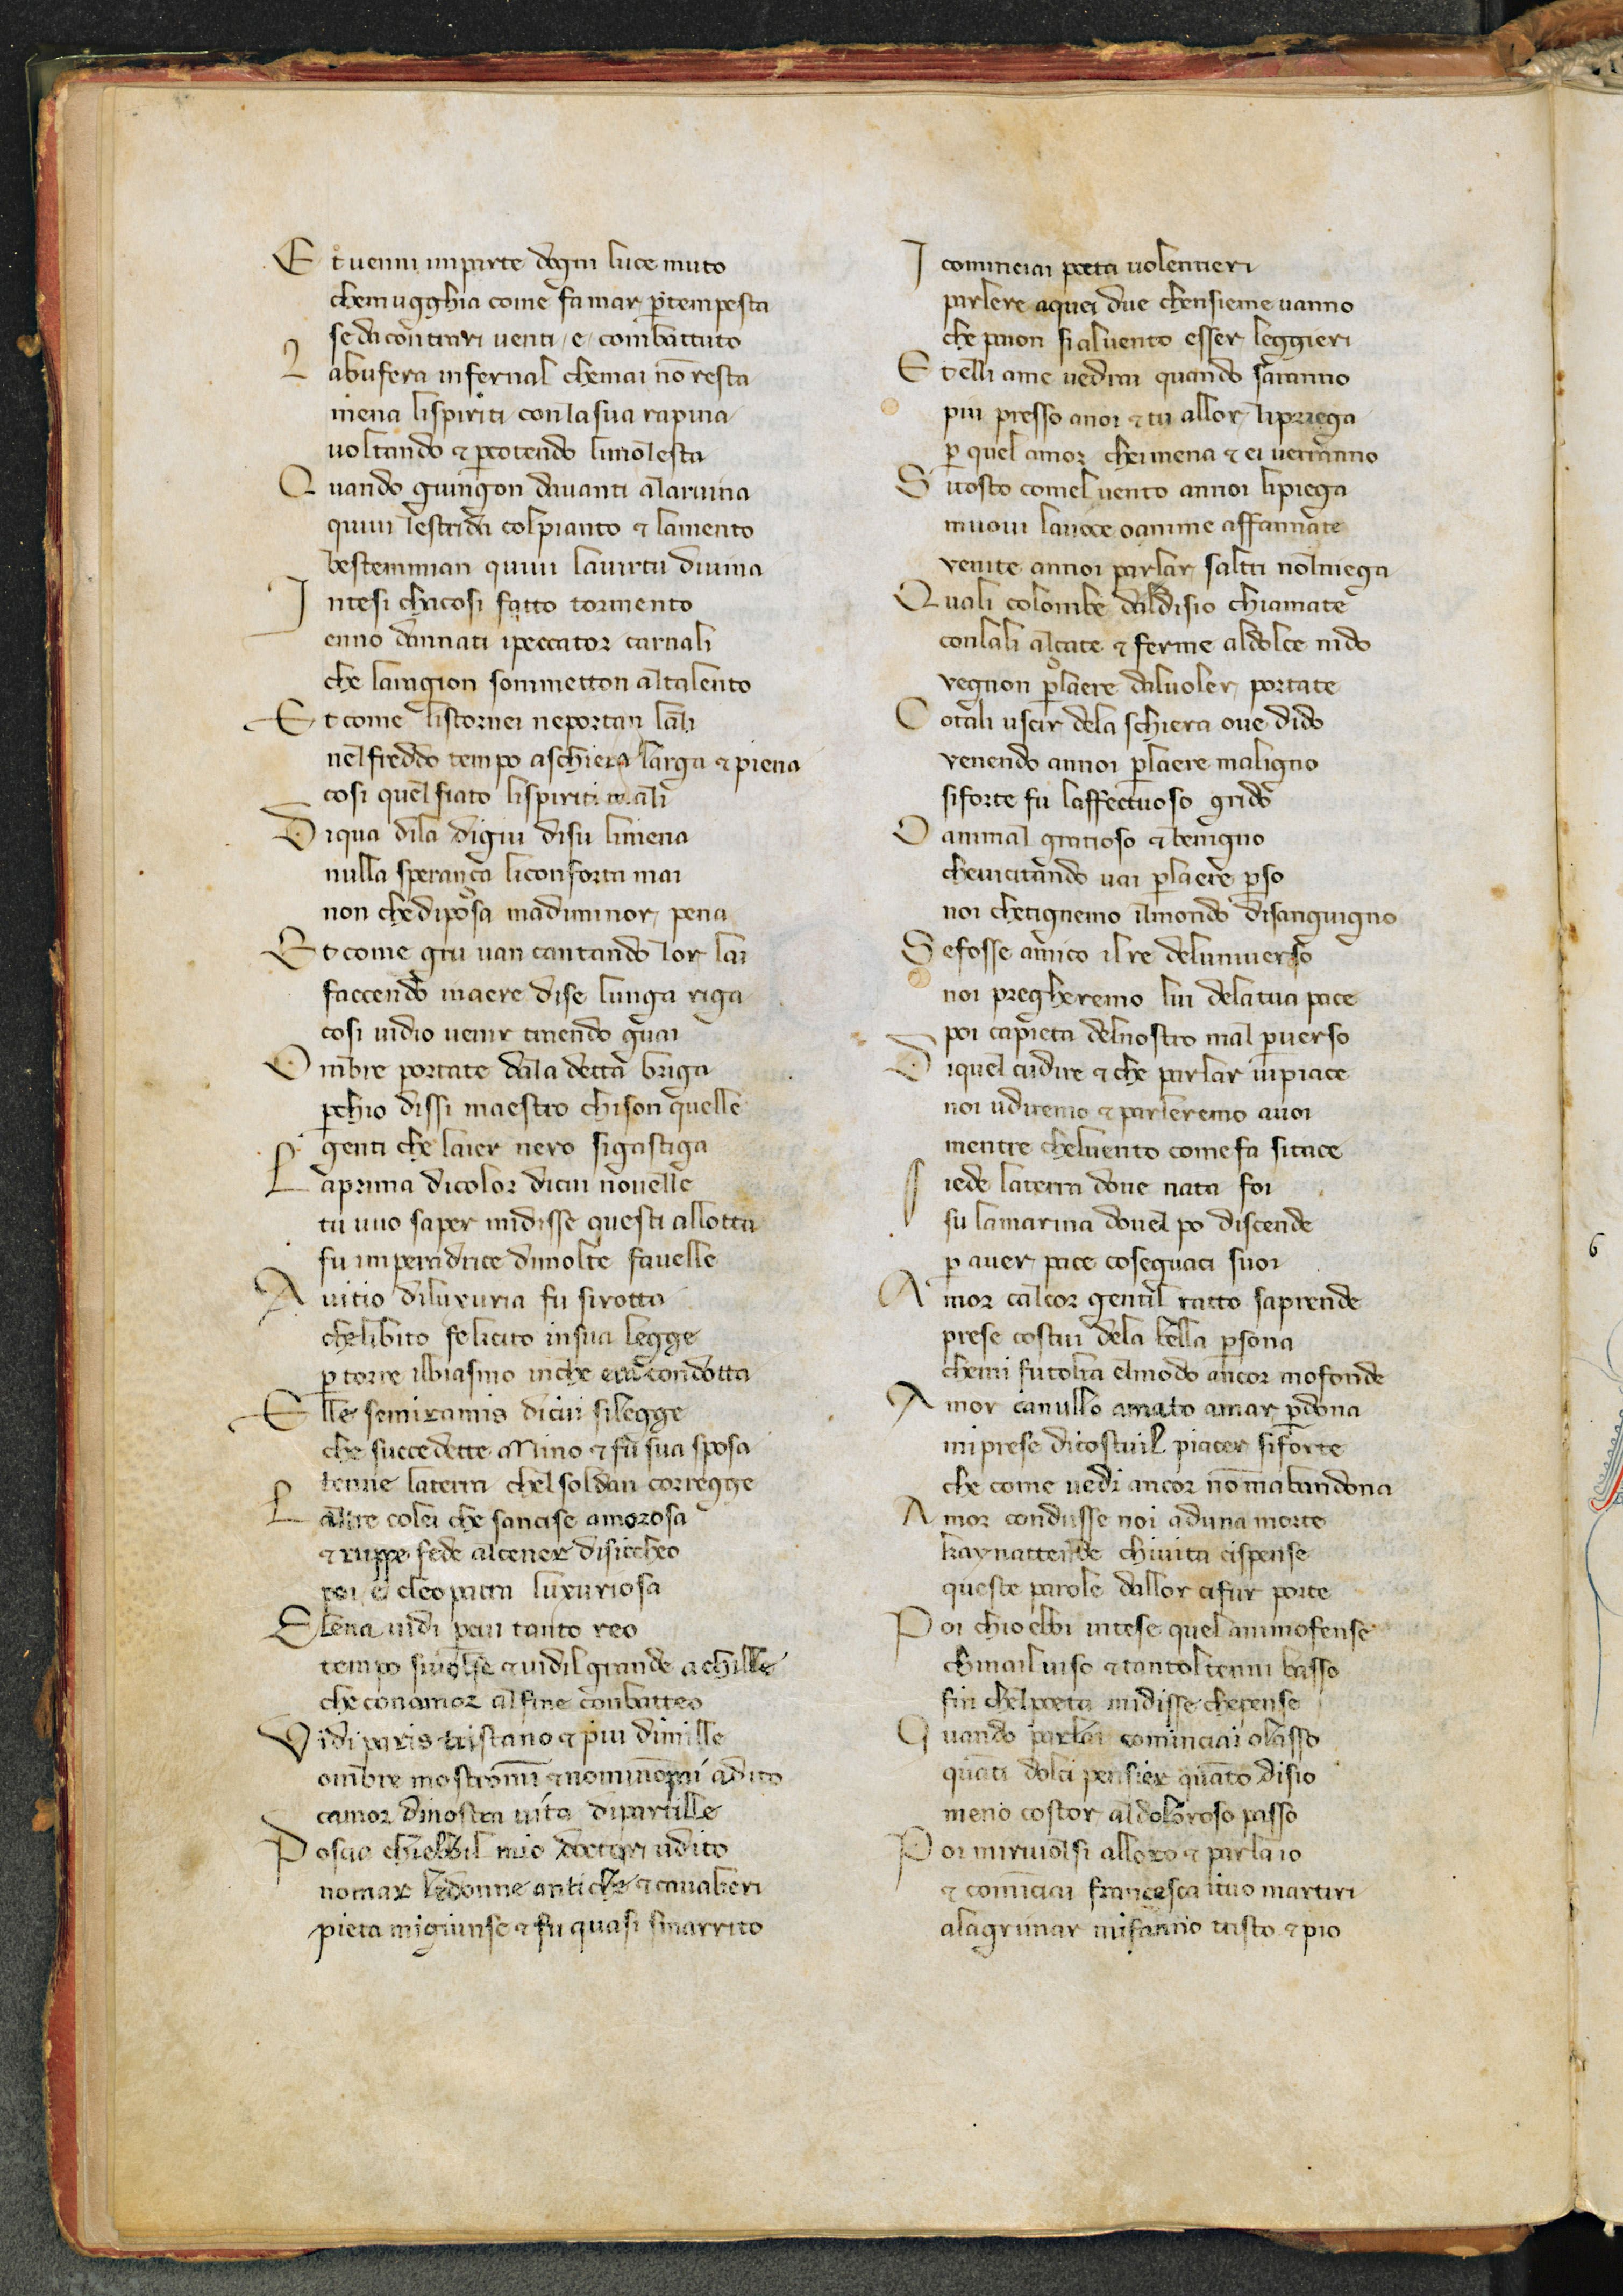 Et uenni imparte dogni luce muto
che mugghia come fa mar p tempesta
se da contrari uenti e combattuto
La bufera infernal che mai nō resta
mena lispiriti con la sua rapina
uoltando & pcotendo limolesta
Quando giungon dauanti alaruina
quiui lestrida colpianto & lamento
bestemmian quiui lauirtu diuina
Intesi chacosi fatto tormento
enno dannati ipeccator carnali
che laragion sommetton altalento
Et come listornei neportan lali
nel freddo tempo aschiera larga & piena
cosi quel fiato lispiriti mali
Diqua dila digiu disu limena
nulla sperança liconforta mai
non che diposa madiminor pena
Et come gru uan cantando lor lai
faccendo inaere dise lunga riga
cosi uidio uenir traendo guai
Ombre portate dala detta briga
pchio dissi maestro chi son quelle
genti che laier nero sigastiga
La prima dicolor dicui nouelle
tu uuo saper midisse questi allotta
fu imperadrice dimolte fauelle
A uitio diluxuria fu sirotta
che libito fe licito in sua legge
p torre ilbiasmo inche era condotta
Elle semiramis dicui silegge
che succedette a Nino & fu sua sposa
tenne laterra chel soldan corregge
Laltre colei che sancise amorosa
& ruppe fede alcener disiccheo
poi e cleopatra luxuriosa
Elena uidi pcui tanto reo
tempo siuolse & uidil grande achille
che con amor al fine combatteo
Vidi paris tristano & piu dimille
ombre mostrommi & nominommi adito
camor dinostra uita dipartille
Poscia chiebbil mio doctor udito
nomar ledonne antiche & caualieri
pieta migiunse & fu quasi smarrito
I cominciai poeta uolentieri
parlere aquei due chensieme uanno
che paion si aluento esser leggieri
Et elli ame uedrai quando saranno
piu presso anoi & tu allor lipriega
p quel amor cheimena & ei uerranno
Si tosto comel uento annoi lipiega
muoui lauoce oanime affannate
uenite annoi parlar saltri nolniega
Quali colombe daldisio chiamate
conlali alçate & ferme aldolce nido
vegnon p laere daluoler portate
Cotali uscir dela schiera oue dido
venendo annoi p laere maligno
siforte fu laffectuoso grido
O animal gratioso & benigno
cheuicitando uai p laere pso
noi chetignemo ilmondo disanguigno
Se fosse amico il re deluniuerso
noi pregheremo lui dela tua pace
poi capieta delnostro mal puerso
Di quel cudire & che parlar uipiace
noi udiremo & parleremo auoi
mentre cheluento come fa sitace
Siede laterra doue nata foi
su lamarina douel po discende
p auer pace cosequaci suoi
Amor calcor gentil ratto saprende
prese costui dela bella psona
chemi futolta elmodo ancor mofende
Amor canullo amato amar pdona
miprese dicostuil piacer siforte
che come uedi ancor nō mabandona
Amor condusse noi aduna morte
kayn attende chiuita cispense
queste parole dallor cifur porte
Poi chio ebbi intese quel animofense
chinail uiso & tantol tenni basso
fin chel poeta midisse chepense
Quando parlai cominciai olasso
quāti dolci pensier quāto disio
meno costor aldoloroso passo
Poi miriuolsi alloro & parlaio
& comīciai francesca ituo martiri
alagrimar mifanno tristo & pio
6